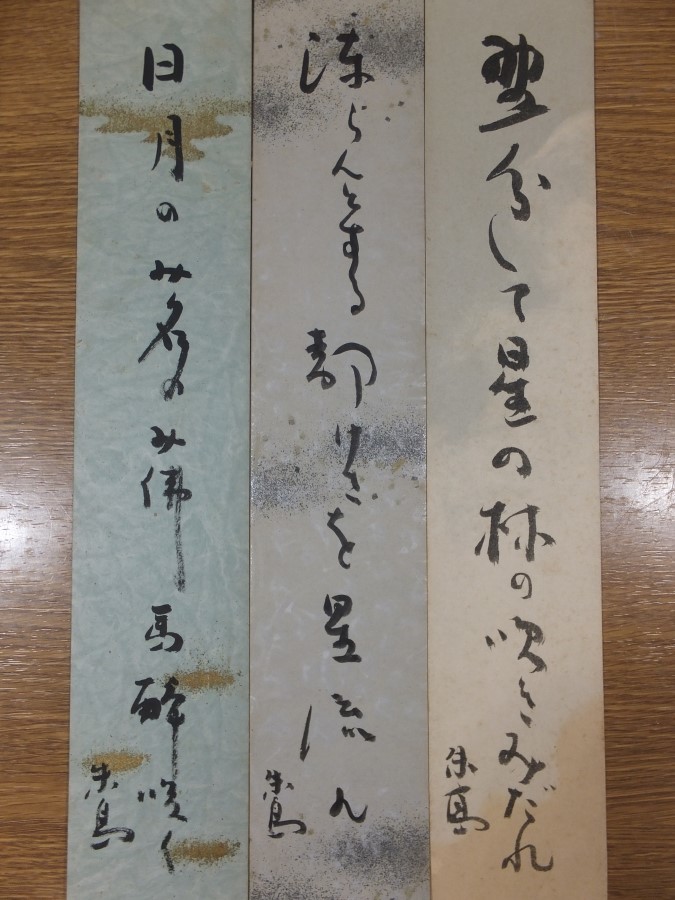 野分して星の林の吹きみだれ
朱鳥
凍らんとする静けさを星流れ
朱鳥
日月のみ名のみ佛馬酔咲く
朱鳥